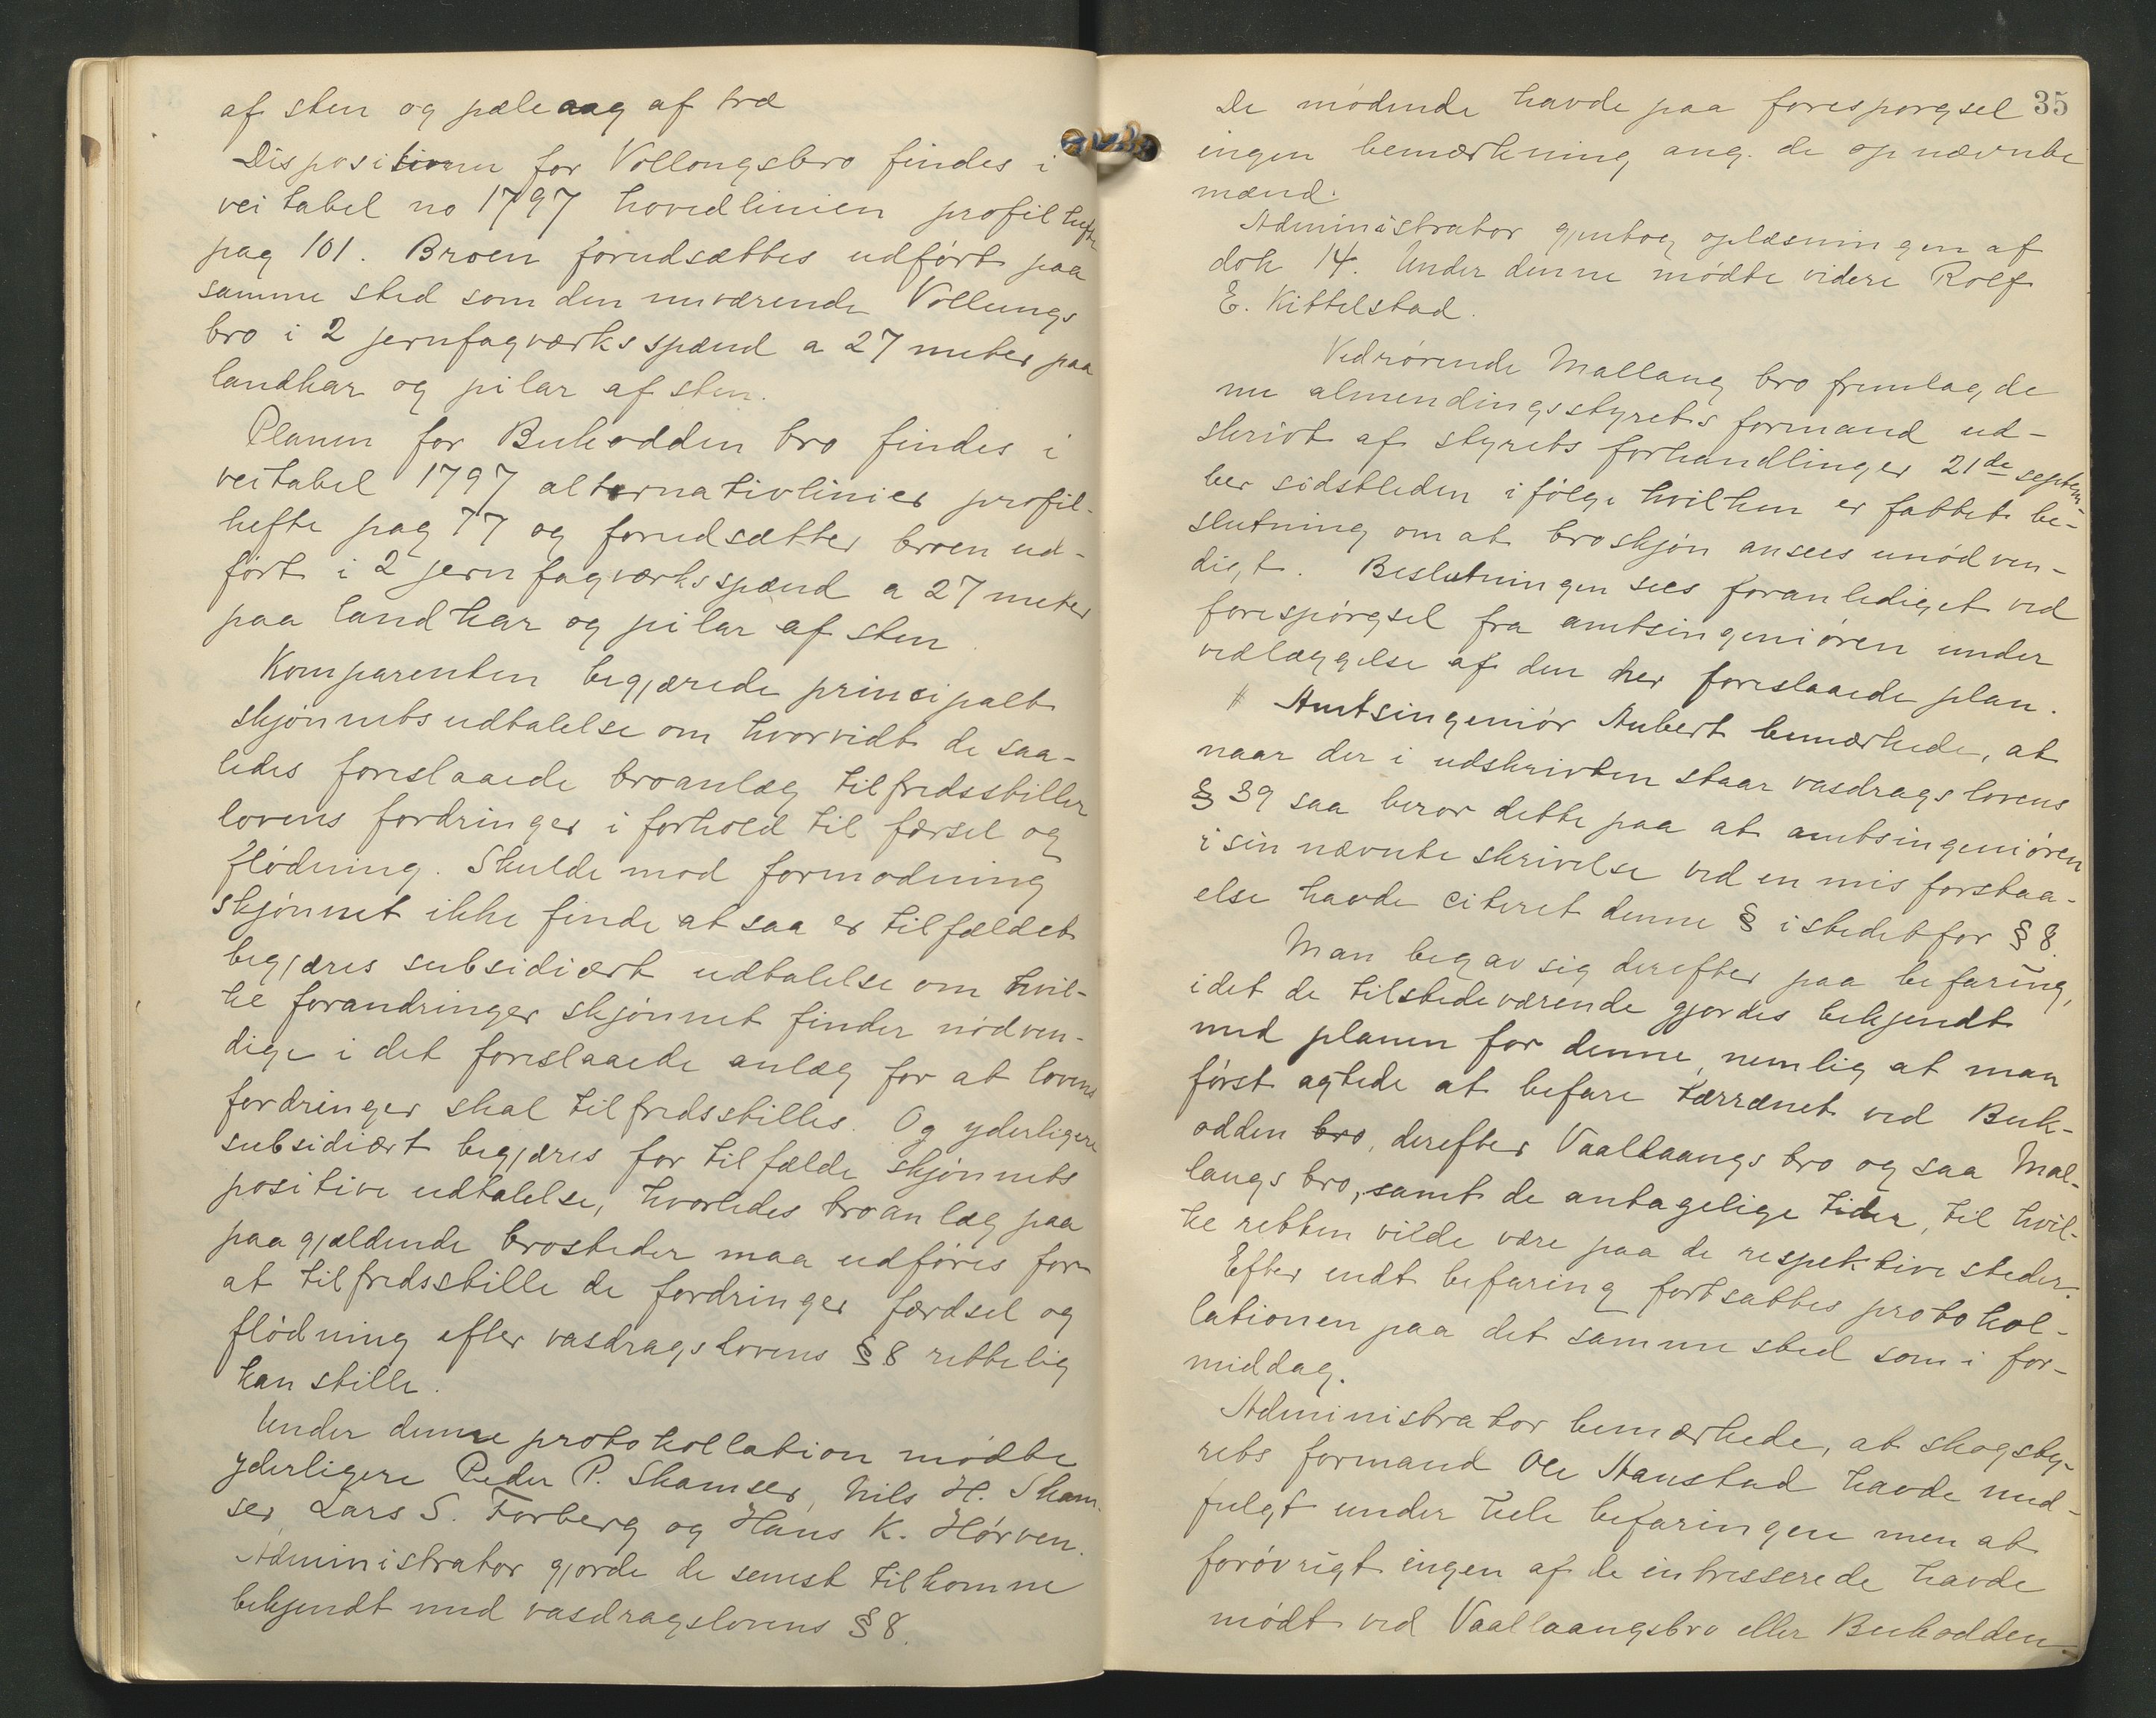 af sten og pæleaag af træ
Dispositionen for Vollongsbro findes i
vei tabel no 1797 hovedlinien profilhefte
pag 101. Broen forudsættes udført paa
samme sted som den nuværende Vollungs
bro i 2 jernfagværksspænd a 27 meter paa
landkar og pilar af sten.
Planen for Bukodden bro findes i
veitabel 1797 alternativlinier profil-
hefte pag 77 og forudsætter broen ud-
ført i 2 jernfagværksspænd a 27 meter
paa landkar og pilar af sten
Komparenten begjærede principalt
skjønnets udtalelse om hvorvidt de saa-
ledes foreslaaede broanlæg tilfredsstiller
lovens fordringer i forhold til færsel og
flødning. Skulde mod formodning
skjønnet ikke finde at saa er tilfældet
begjæres subsidiært udtalelse om hvil-
ke forandringer skjønnet finder nødven-
dige i det foreslaaede anlæg for at lovens
fordringer skal tilfredsstilles. Og yderligere
subsidiært begjæres for tilfælde skjønnets
positive udtalelse, hvorledes broanlæg paa
paagjældende brosteder maa udføres for
at tilfredsstille de fordringer færdsel og
flødning efter vasdragslovens § 8 rettelig
kan stille.
Under denne protokollation mødte
yderligere Peder P. Skamser, Nils H. Skam-
ser, Lars S. Forberg og Hans K. Hørven.
Administrator gjorde de senest tilkomne
bekjendt med vasdragslovens § 8.
35
De mødende havde paa forespørgsel
ingen bemærkning ang. de opnævnte
mænd.
Administrator gjentog oplæsningen af
dok 14. Under denne mødte videre Rolf
E. Kittelstad.
Vedrørende Mallang bro fremlagde
nu almendingsstyrets formand ud-
skrivt af styrets forhandlinger 21de septem-
ber sidstleden ifølge hvilken er fattet be-
slutning om at broskjøn ansees unødven-
digt. Beslutningen sees foranlediget ved
forespørgsel fra amtsingeniøren under
vedlæggelse af den her foreslaaede plan.
# Amtsingeniør Aubert bemærkede, at
naar der i udskrivten staar vasdragslovens
§ 39 saa beror dette paa at amtsingeniøren
i sin nævnte skrivelse ved en misforstaa-
else havde citeret denne § istedetfor § 8.
Man begav sig derefter paa befaring,
idet de tilstedeværende gjordes bekjendt
med planen for denne, nemlig at man
først agtede at befare tærrænet ved Buk-
odden bro, derefter Vaallaangs bro og saa Mal-
langs bro, samt de antagelige tider, til hvil-
ke retten vilde være paa de respektive steder.
Efter endt befaring fortsattes protokol-
lationen paa det samme sted som i for-
middag.
Administrator bemærkede, at skogsty-
rets formand Ole Hanstad havde med-
fulgt under hele befaringen men at
forøvrigt ingen af de intresserede havde
mødt ved Vaallaangsbro eller Bukodden.